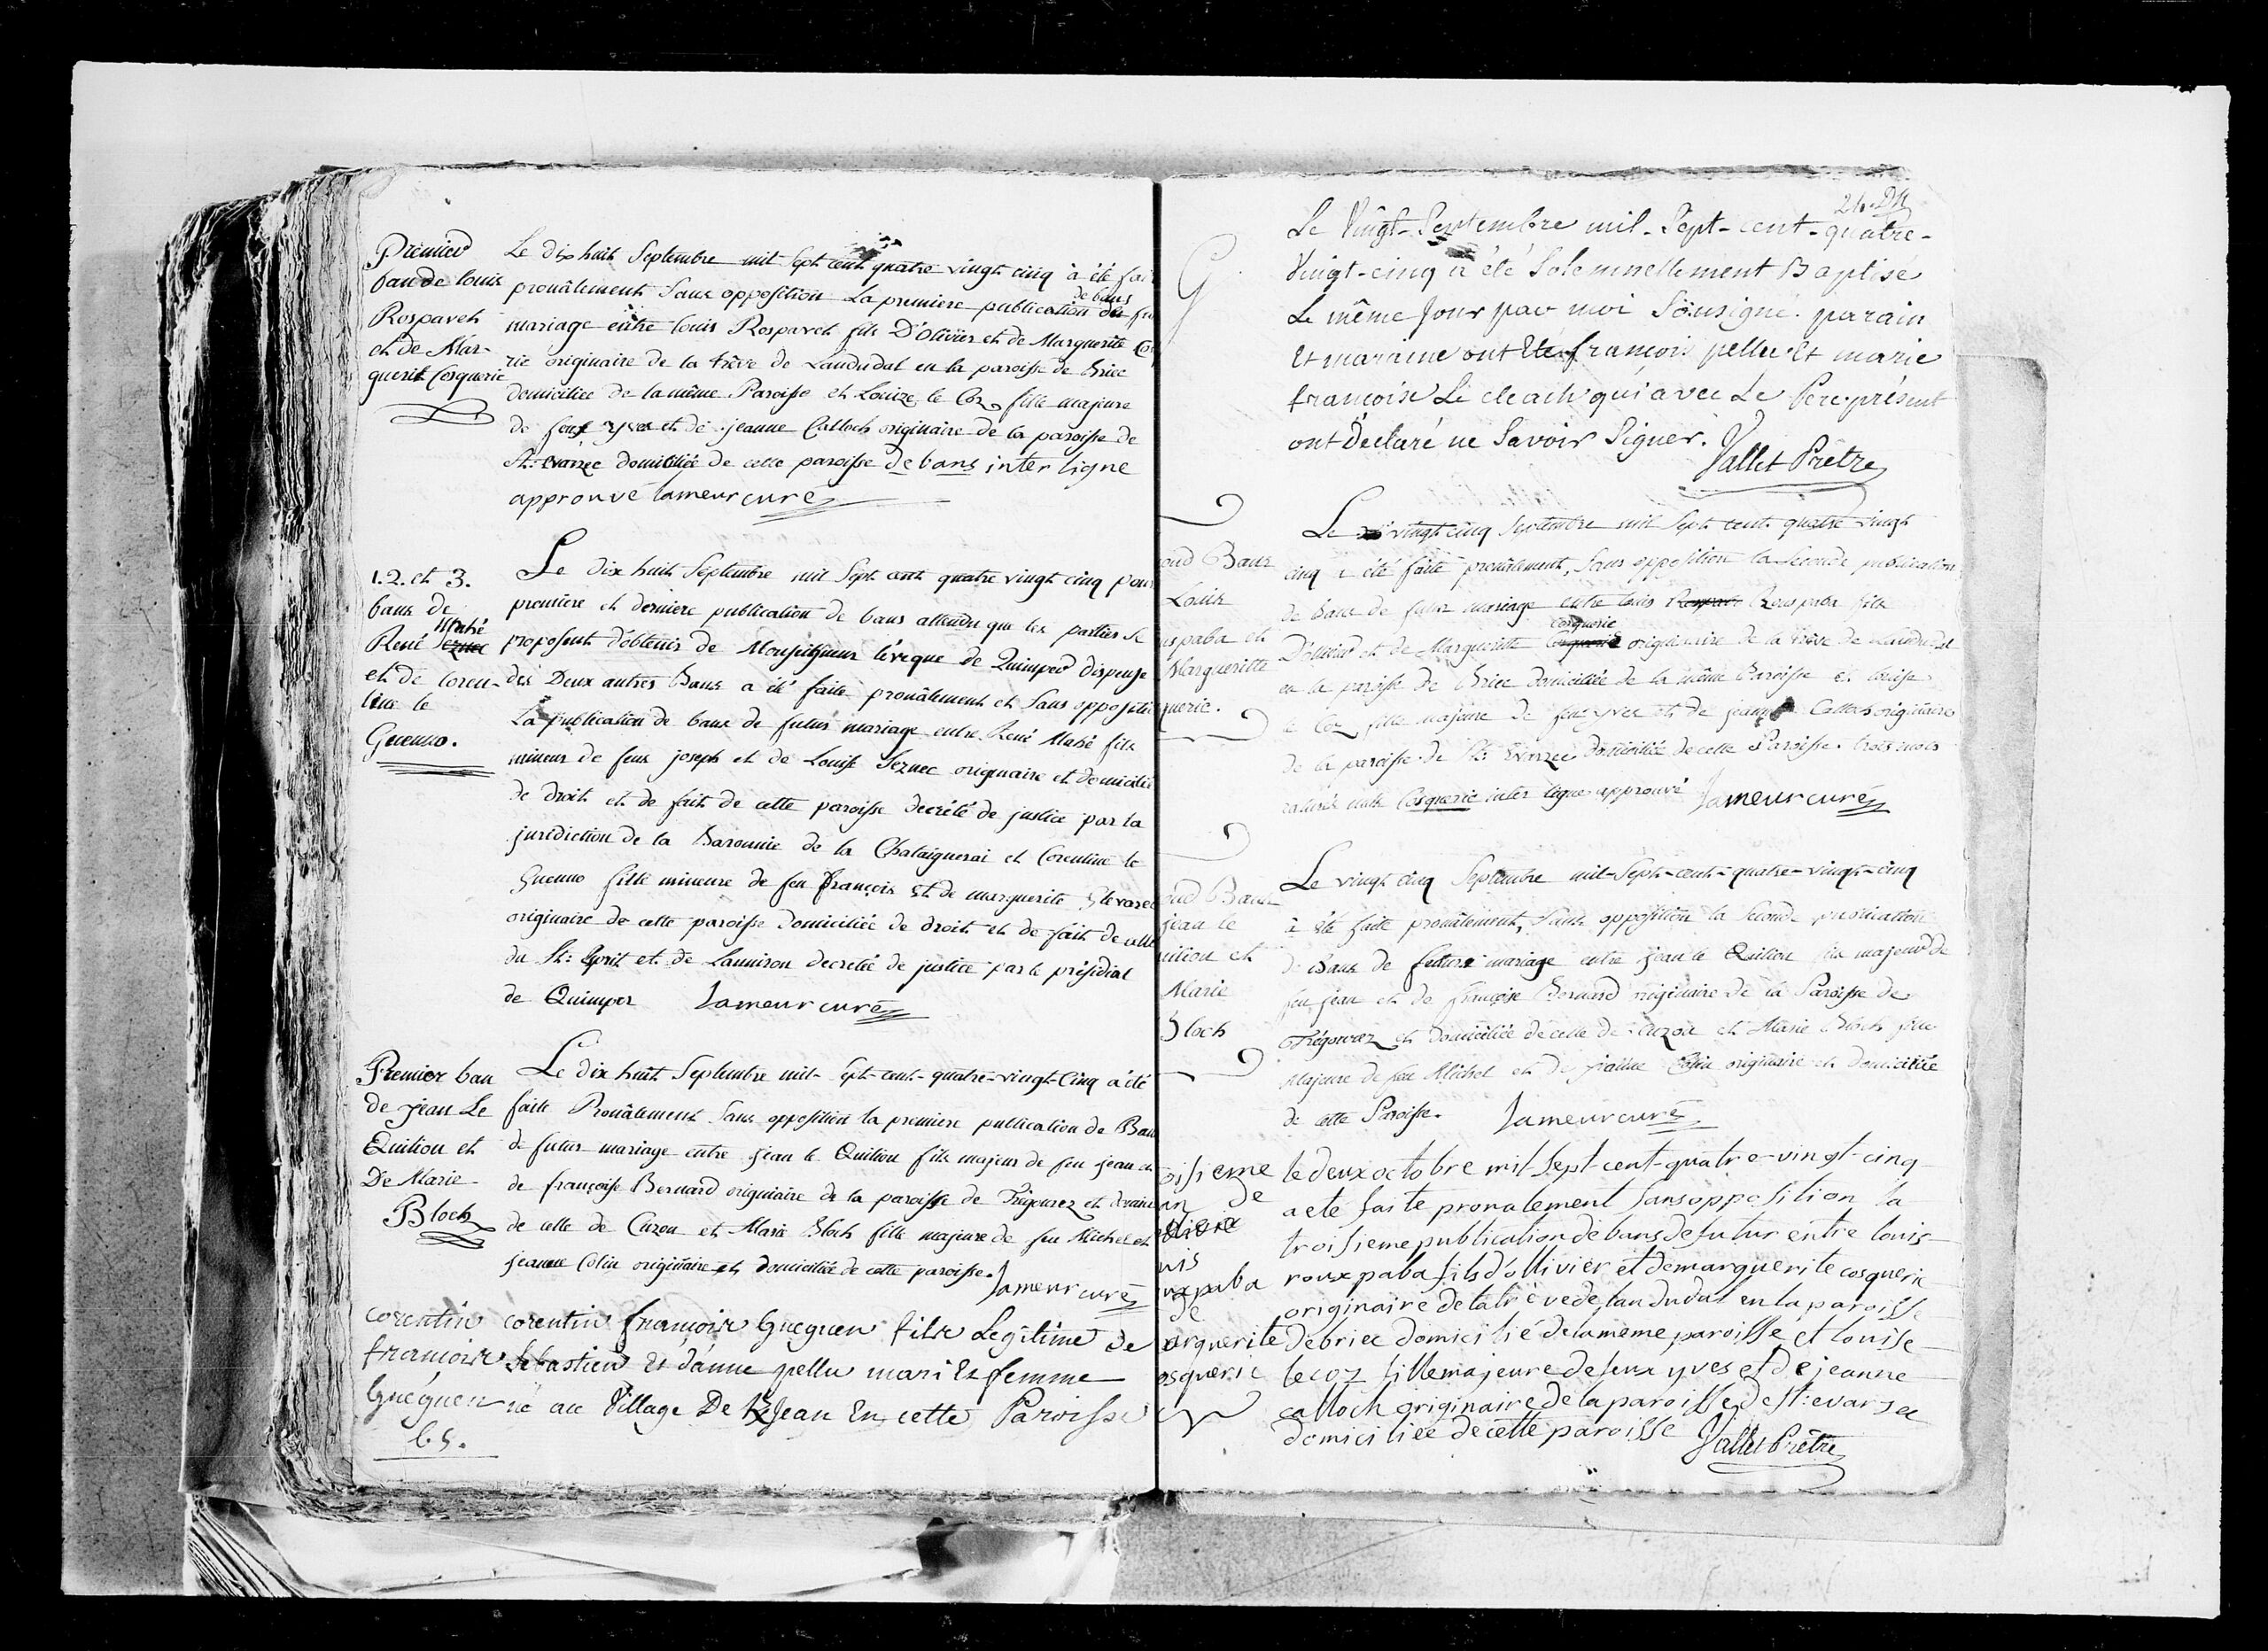 Premier
ban de louis
Rosparch
et de Mar-
guerit Cosquerie
Le dix huit Septembre mil Sept cent quatre vingt cinq à été fai
pronâlement Sans opposition La premiere publication de bans du fu
mariage entre louis Rosparch fils D'Olivier et de Marguerite Co
rie originaire de la trêve de Landudal en la paroisse de Briec
domiciliee de la même Paroisse et Louize le Coz fille majeure
de feux yves et de jeanne Calloch originaire de la paroisse de
St: Evarzec domiciliée de cette paroisse de bans inter ligne
approuvé Lameur curé
1. 2. et 3.
bans de
Mahé
René Seznec
et de Coren-
tine le
Guenno.
Le dix huit Septembre mil Sept cent quatre vingt cinq pour
premiere et derniere publication de bans attendu que les parties se
proposent d'obtenir de Monseigneur l'évêque de Quimper dispense
des Deux autres Bans a été faite pronâlement et Sans oppositi
La publication de bans de futur mariage entre René Mahé fils
mineur de feux joseph et de Louise Seznec originaire et domicilié
de droit et de fait de cette paroisse decrété de justice par la
juridiction de la Baronnie de la Chataigneraie et Corentine le
Guenno fille mineure de feu François Et de marguerite
originaire de cette paroisse domiciliée de droit et de fait de celle
du St: Esprit et de Lanniron decretée de justice par le présidial
de Quimper Lameur curé
Premier ban
de Jean Le
Quition et
De Marie
Bloch
Le dix huit Septembre mil-Sept-cent-quatre-vingt-Cinq a été
faite Pronâlement Sans opposition la premiere publication de Ban
de futur mariage entre jean le Quition fils majeur de feu jean et
de françoise Bernard originaire de la paroisse de Trégourez et
de celle de Cuzon et Marie Bloch fille majeure de feu Michel et
jeanne Colin originaire et domiciliée de cette paroisse.
Lameur curé
corentin
françois
Guéguen
b. S.
corentin françois Gueguen fils Legitime de
Sébastien Et d'anne pellu mari Et femme
né au Village De Kjean En cette Paroisse
Le Vingt-Septembre mil-Sept-cent-quatre-
Vingt-cinq a été Solemnellement Baptisé
Le même Jour par moi Sousigné. parain
Et maraine ont Eté françois pellu Et marie
françoise Le cleach qui avec Le Pere présent
ont Déclaré ne Savoir Signer.
Vallet Prêtre
ond Bans
Louis
uspaba et
Margueritte
querie.
Le vingt cinq Septembre mil Sept cent quatre vingt
cinq a été faite pronâlement, Sans opposition la Seconde publication
de bans de futur mariage entre louis Rospart Rouspaba fils
Cosquerie
D'olivier et de Margueritte Cosquerie originaire de la trêve de Landudal
en la paroisse de Briec domiciliée de la même Paroisse et louise
le Coz fille majeure de feux yves et de jeanne Calloch originaire
de la paroisse de St: Evarzec domiciliée de cette Paroisse. trois mots
raturés nuls Cosquerie inter ligne approuvé Lameur curé
ond Bans
jean le
uition et
Marie
Bloch
Le vingt cinq Septembre mil-Sept-cent-quatre-vingt-cinq
a été faite pronâlement, Sans opposition la Seconde publication
de Bans de futurs mariage entre jean le Quition fils majeur de
feu jean et de françoise Bernard originaire de la Paroisse de
Trégourez et domiciliée de celle de Cuzon et Marie Bloch fille
Majeure de feu Michel et de jeanne Colin originaire et domiciliée
de cette Paroisse. Lameur curé
oisieme
an de
uis
uxpaba
de
arguerite
osquerie
le deux octobre mil-Sept-cent-quatre-vingt-cinq
a eté faite pronalement sans opposition la
troisieme publication de bans de futur entre louis
rouxpaba fils d'ollivier et de marguerite cosquerie
originaire de la trêve de landudal en la paroisse
de briec domicilié de la même paroisse et louise
le coz fille majeure de feux yves et de jeanne
calloch originaire de la paroisse de st: evarzec
domiciliée de cette paroisse Vallet Prêtre